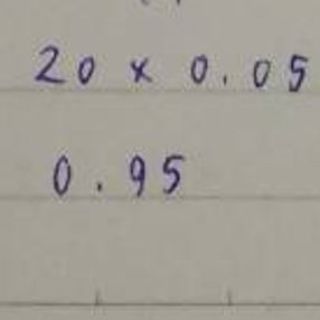 20 x 0.05
0.95